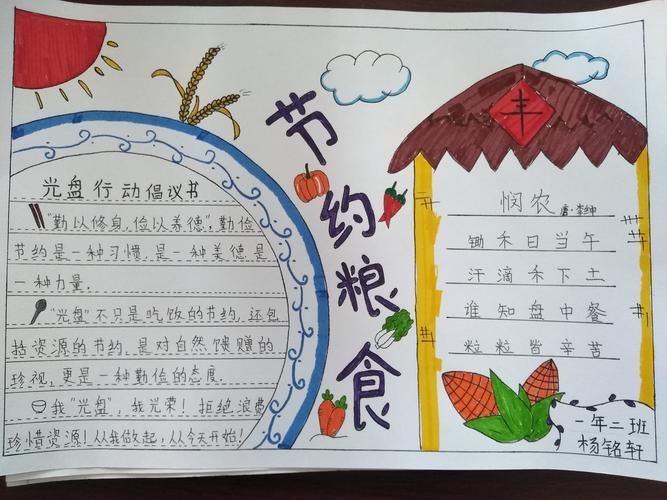 节约粮食
光盘行动倡议书
"勤以修身,俭以养德",勤俭
节约是一种习惯,是一种美德,是
一种力量.
"光盘"不只是吃饭的节约,还包
括资源的节约,是对自然馈赠的
珍视,更是一种勤俭的态度.
我"光盘",我光荣!拒绝浪费
珍惜资源!从我做起,从今天开始!
丰
悯农 唐·李绅
锄禾日当午
汗滴禾下土
谁知盘中餐
粒粒皆辛苦
一年二班
杨铭轩